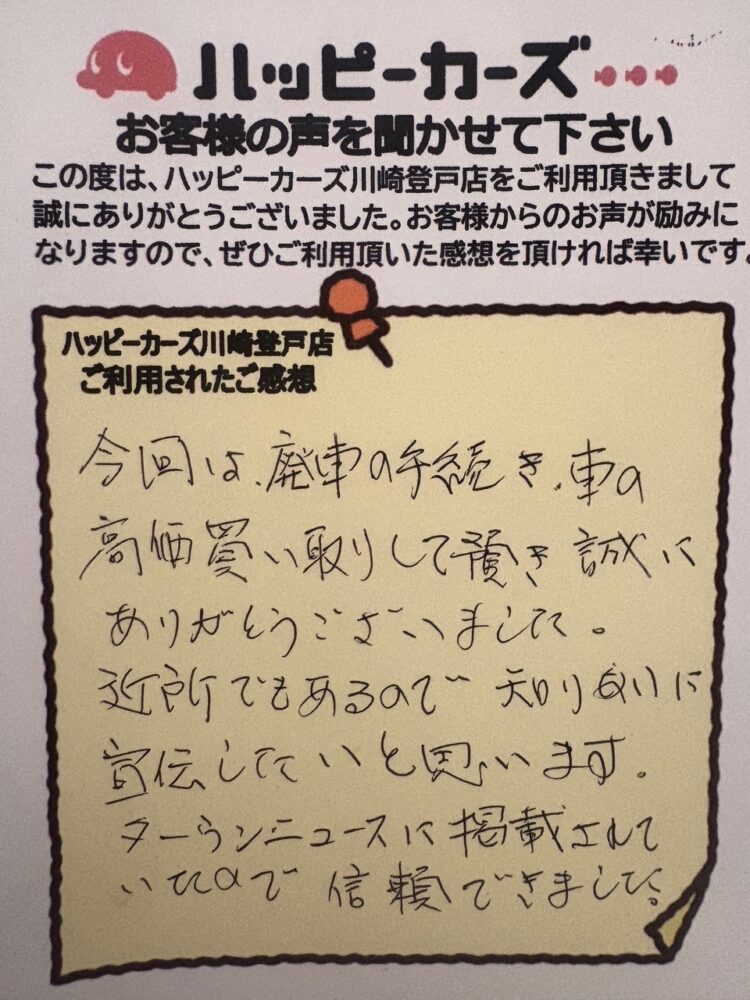 ハッピーカーズ
お客様の声を聞かせて下さい
この度は、ハッピーカーズ川崎登戸店をご利用頂きまして
誠にありがとうございました。お客様からのお声が励みに
なりますので、ぜひご利用頂いた感想を頂ければ幸いです。
ハッピーカーズ川崎登戸店
ご利用されたご感想
今回は、廃車の手続き、車の
高価買い取りして頂き 誠に
ありがとうございました。
近所でもあるので 知り合いに
宣伝したいと思います。
ターウンニュースに掲載されて
いたので 信頼できました。